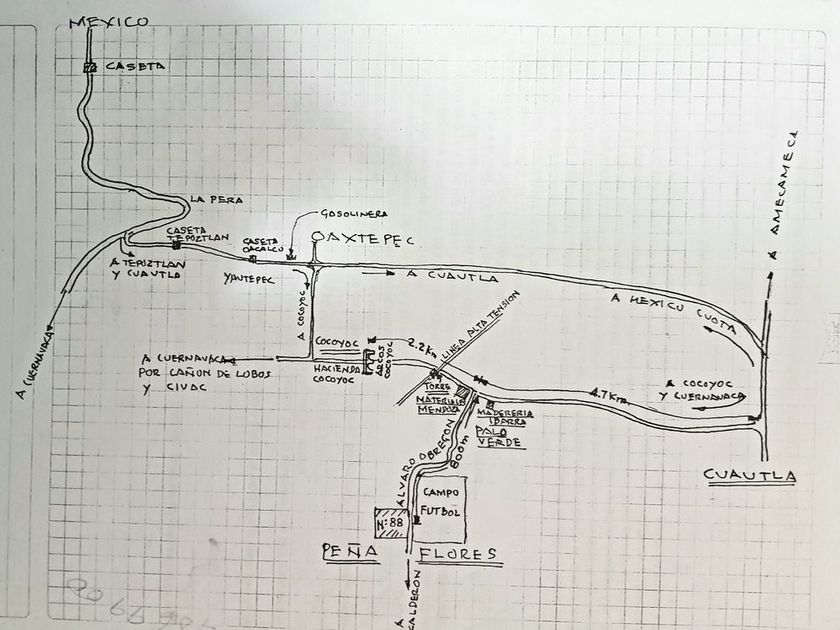 MEXICO
CASETA
LA PERA
GASOLINERA
CASETA
TEPOZTLAN
CASETA
OACALCO
OAXTEPEC
A TEPOZTLAN
Y CUAUTLA
YAUTEPEC
A CUAUTLA
A MEXICO CUOTA
A AMECAMECA
A CUERNAVACA
A COCOYOC
LINEA ALTA TENSION
COCOYOC
ARCOS
COCOYOC
2.2 Km
HACIENDA
COCOYOC
A CUERNAVACA
POR CAÑON DE LOBOS
Y CIVAC
TORRE
MATERIALES
MENDOZA
MADERERIA
IBARRA
PALO
VERDE
4.7 Km
A COCOYOC
Y CUERNAVACA
CUAUTLA
ALVARO OBREGON
800m
CAMPO
FUTBOL
Nº 88
PEÑA FLORES
A
CALDERON